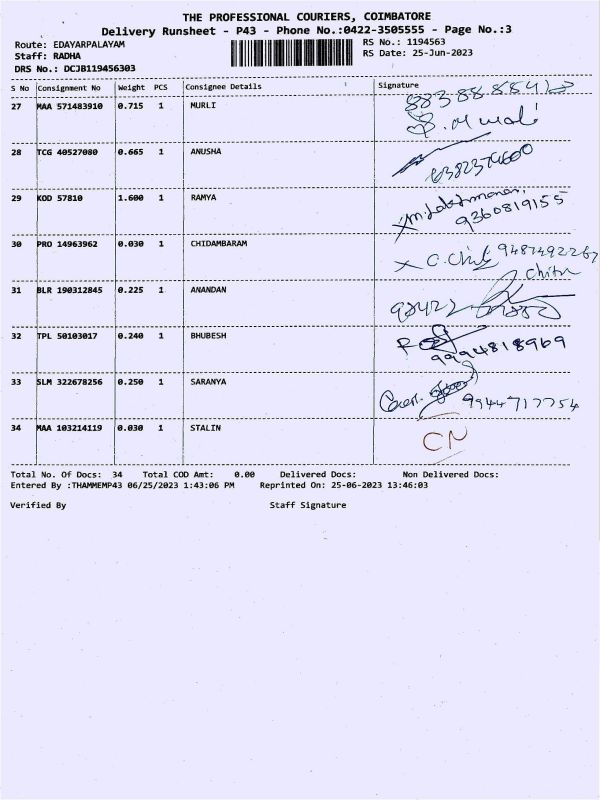 THE PROFESSIONAL COURIERS, COIMBATORE
Delivery Runsheet - P43 - Phone No.:0422-3505555 - Page No.:3
Route: EDAYARPALAYAM RS No.: 1194563
Staff: RADHA RS Date: 25-Jun-2023
DRS No.: DCJB119456303
S No Consignment No Weight PCS Consignee Details Signature
27 MAA 571483910 0.715 1 MURLI
28 TCG 40527080 0.665 1 ANUSHA 6382374600
29 KOD 57810 1.600 1 RAMYA
9360819155
30 PRO 14963962 0.030 1 CHIDAMBARAM 9487492267
Chitra
31 BLR 190312845 0.225 1 ANANDAN
32 TPL 50103017 0.240 1 BHUBESH 9994818969
33 SLM 322678256 0.250 1 SARANYA 9944717754
34 MAA 103214119 0.030 1 STALIN CN
Total No. Of Docs: 34 Total COD Amt: 0.00 Delivered Docs: Non Delivered Docs:
Entered By :THAMMEMP43 06/25/2023 1:43:06 PM Reprinted On: 25-06-2023 13:46:03
Verified By Staff Signature